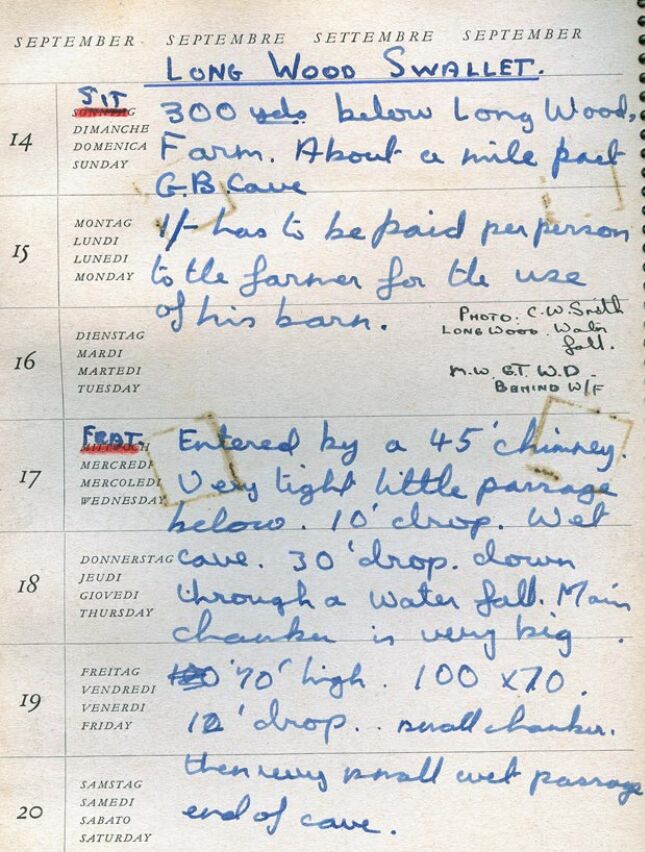 SEPTEMBER SEPTEMBRE SETTEMBRE SEPTEMBER
LONG WOOD SWALLET.
SIT
14
SONNTAG
DIMANCHE
DOMENICA
SUNDAY
300 yds below Long Wood,
Farm. About a mile past
G.B. Cave
15
MONTAG
LUNDI
LUNEDI
MONDAY
1/- has to be paid per person
to the farmer for the use
of his barn.
PHOTO. C.W. Smith
LONGWOOD. Water
fall.
M.W. G.T. W.D.
BEHIND W/F
16
DIENSTAG
MARDI
MARTEDI
TUESDAY
FEAT.
17
MITTWOCH
MERCREDI
MERCOLEDI
WEDNESDAY
Entered by a 45' chimney.
Very tight little passage
below. 10' drop. Wet
18
DONNERSTAG
JEUDI
GIOVEDI
THURSDAY
cave. 30' drop. down
through a water fall. Main
chamber is very big.
19
FREITAG
VENDREDI
VENERDI
FRIDAY
70' high. 100 x 70.
12' drop.. small chamber.
20
SAMSTAG
SAMEDI
SABATO
SATURDAY
then very small wet passage
end of cave.